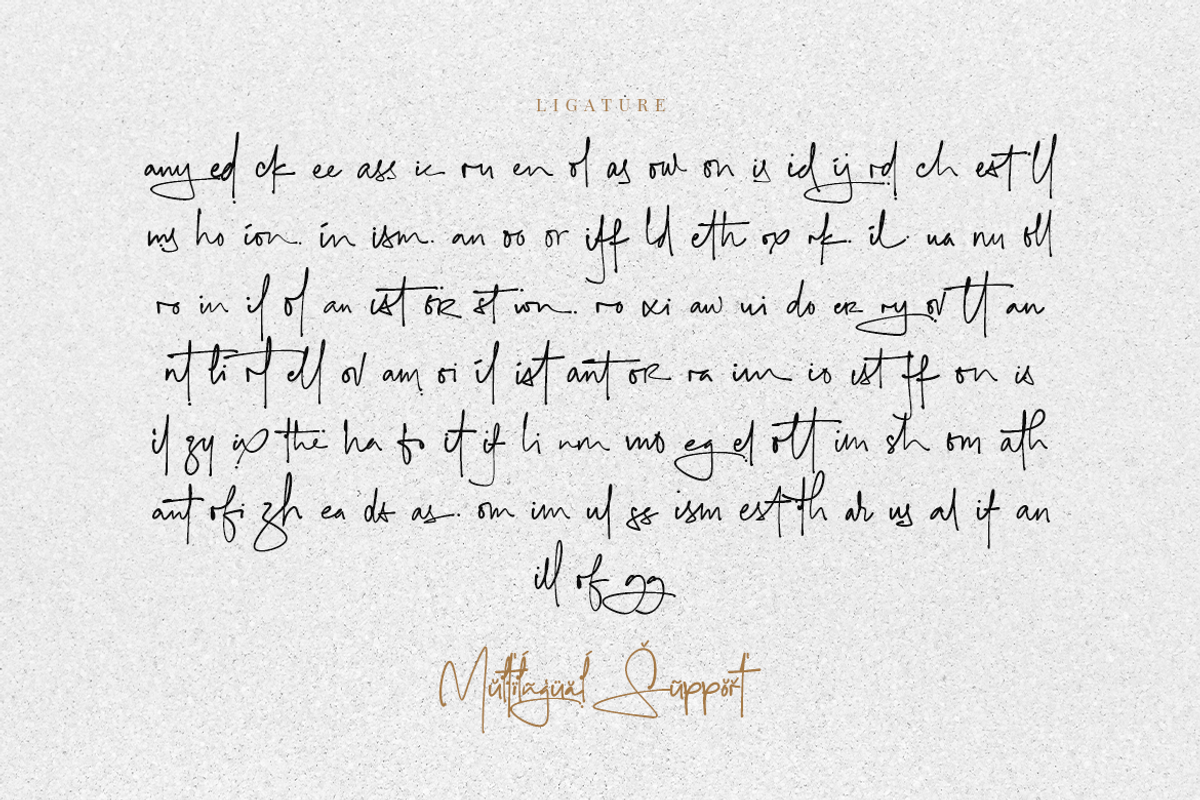 LIGATURE
any ed ck ee ass ic ru en ol as ow on is id ij rd ch est ll
my ho ion in ism an oo or iff ld eth op rk il ua nu oll
ro in il ol an ist or st ion ro xi aw ui do er ry ov tt an
nt ti rt ell ov am oi il ist ant or ra im io ist ff on is
il zy ip the ha fo it if li nm mo eg el ott im sh om ath
ant ofi zh ea ds as om im ul ss ism est th ah us al it an
ill of gg
Mŭltïlãgüål Šũppőřt